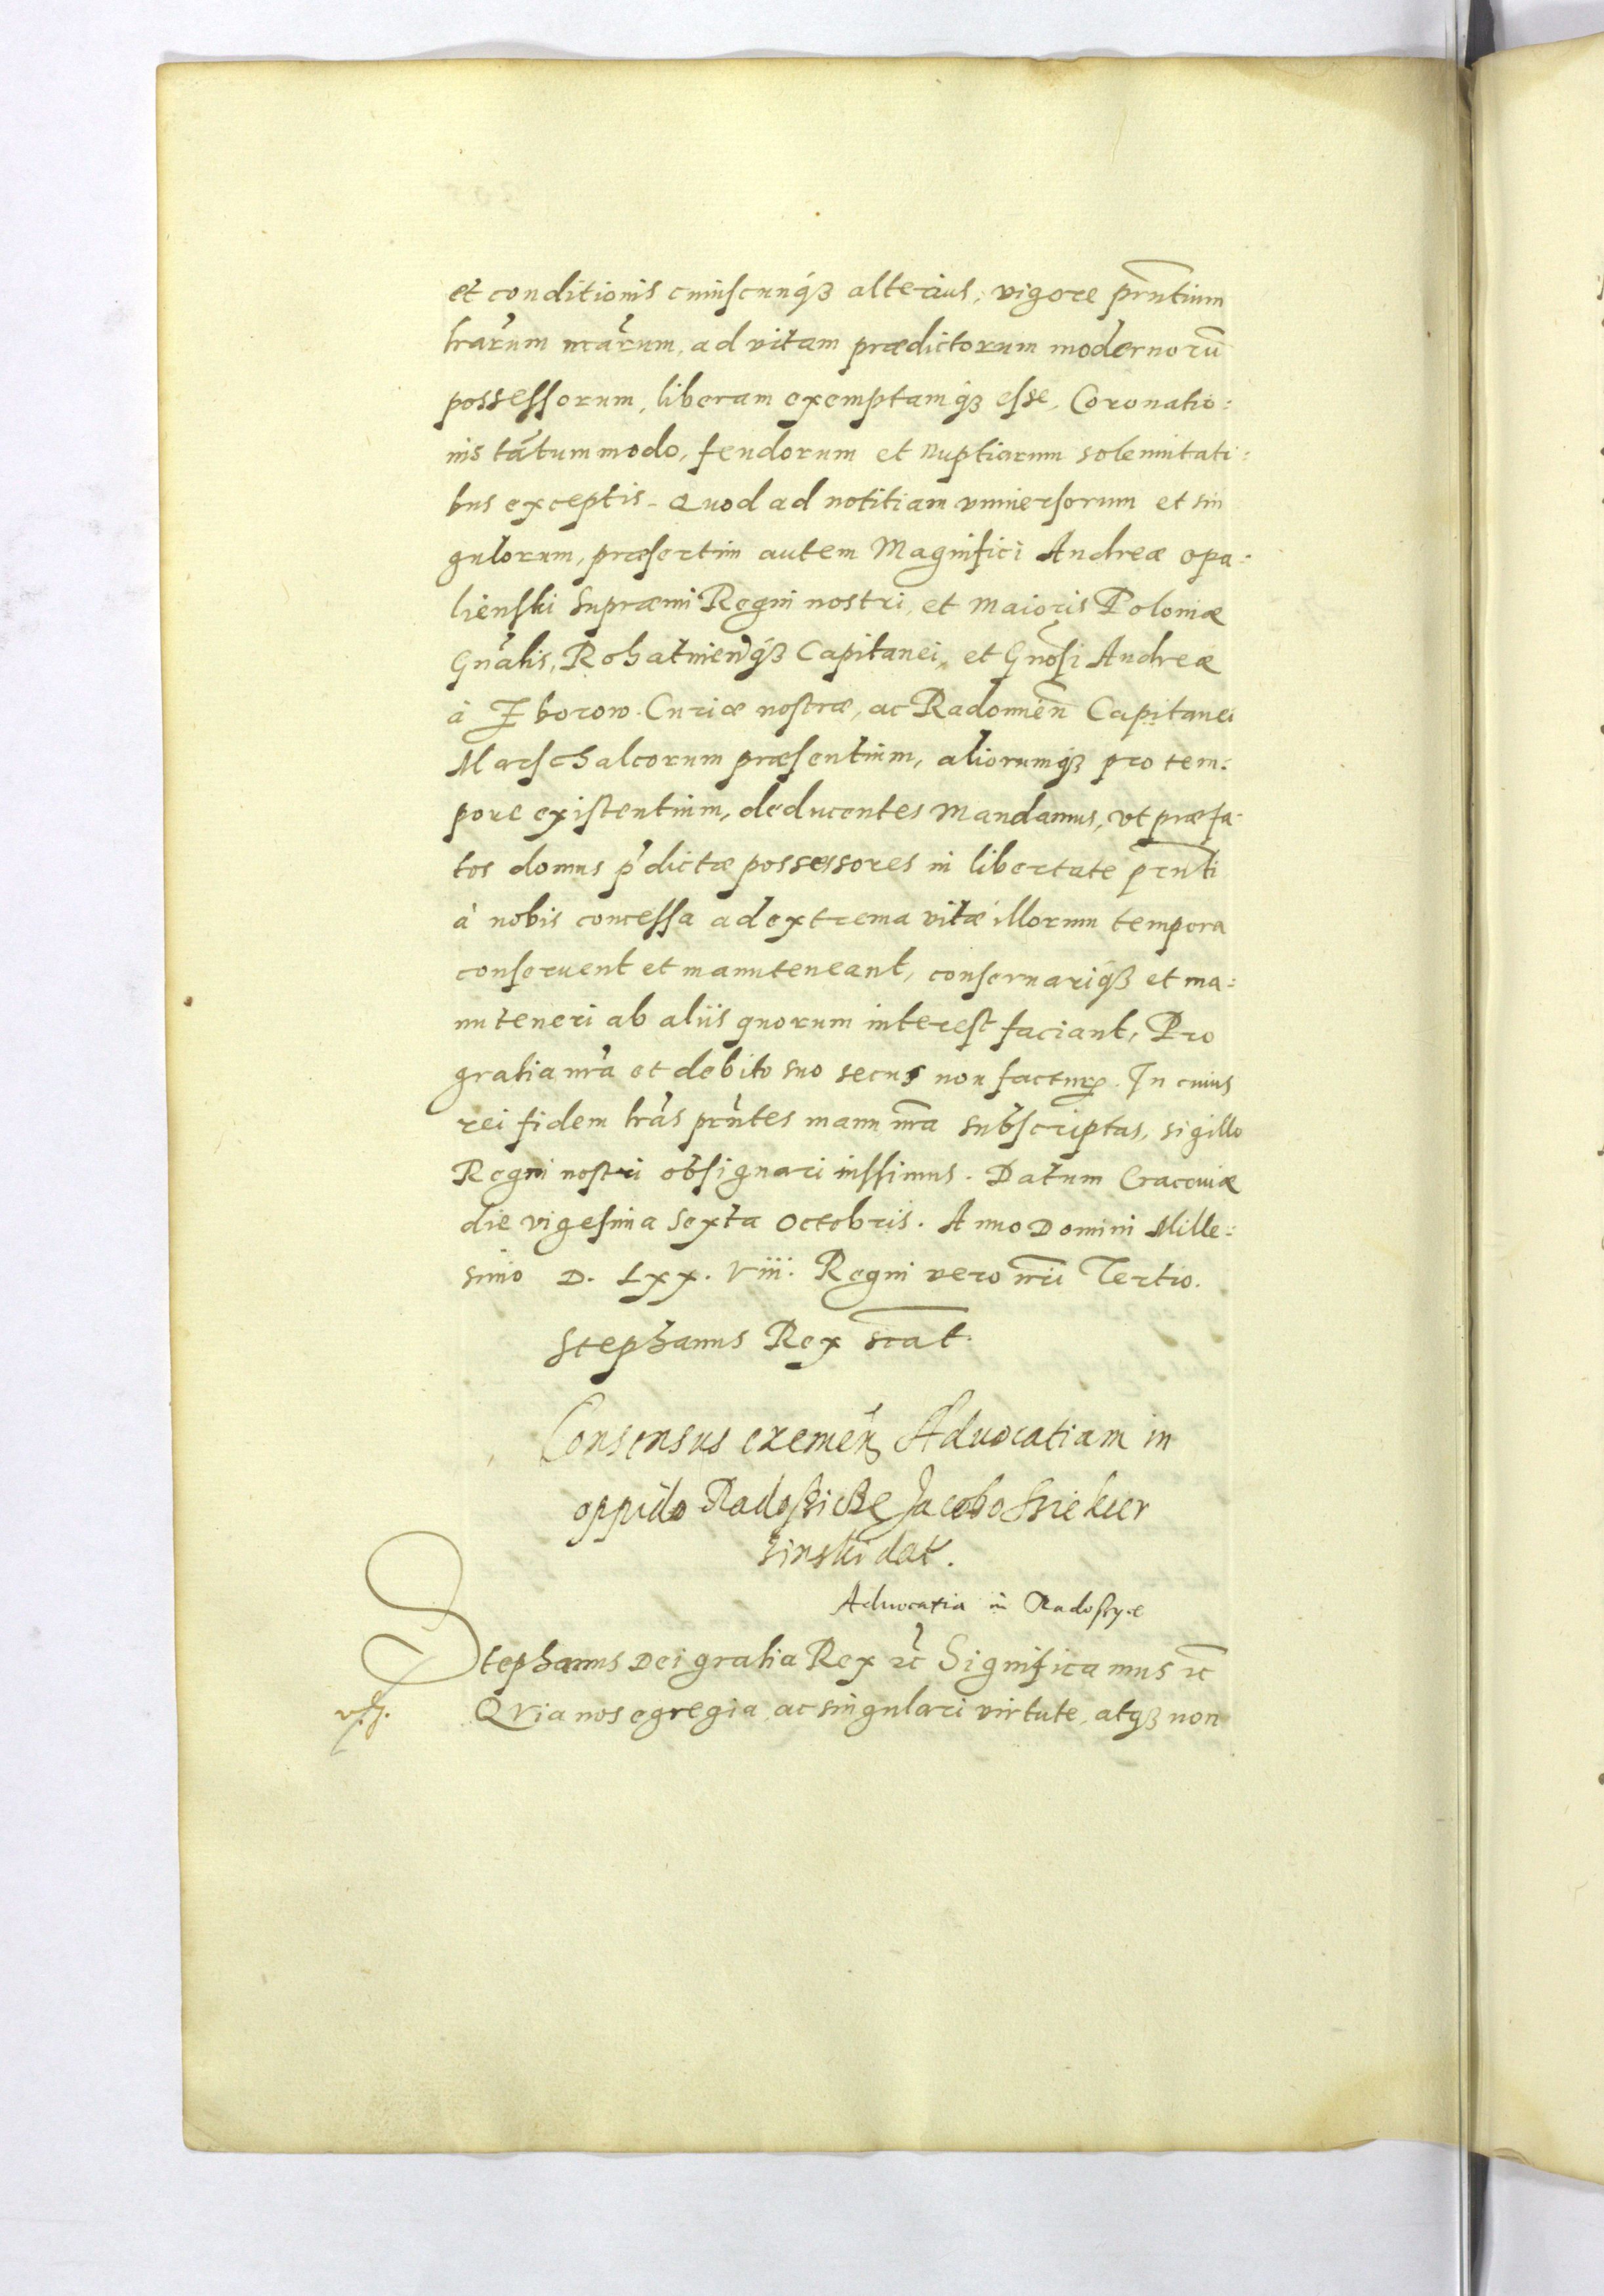 et conditionis cuiuscunq́ꝫ alterius, vigore prñtium
lrarum nrarum, ad vitam prædictorum modernorū
possessorum, liberam exemptamqꝫ esse, Coronatio:
nis tãtummodo, feudorum et nuptiarum solemnitati:
bus exceptis. Quod ad notitiam vniuersorum et sin
gulorum, præsertim autem Magnifici Andreæ Opa:
lienski Supræmi Regni nostri, et Maioris Poloniæ
Gñalis, Rohatineñq́ꝫ Capitanei, et Gñosi Andreæ
à Zborow Curiæ nostræ, ac Radomieñ Capitanei
Marschalcorum præsentium, aliorumqꝫ pro tem:
pore existentium, deducentes Mandamus, vt præfa:
tos domus p̃dictæ possessores in libertate prñti
à nobis concessa ad extrema vitæ illorum tempora
conseruent et manuteneant, conseruariqꝫ et ma:
nuteneri ab aliis quorum interest faciant, Pro
gratia nrã et debito suo secus non facturj. In cuius
rei fidem lrãs prñtes manu nrã subscriptas, sigillo
Regni nostri obsignari iussimus. Datum Cracouiæ
die vigesima Sexta Octobris. Anno Domini Mille:
simo D. Lxx. Viii. Regni vero nrĩ Tertio.
Stephanus Rex scat.
Consensus exemeñ Aduocatiam in
oppido Radossicze Jacobo
sinski dat.
Aduocatia in Radossyce
Stephanus Dei gratia Rex ꝛc̃ Significamus ꝛc̃
QVia nos egregia ac singulari virtute, atqꝫ non